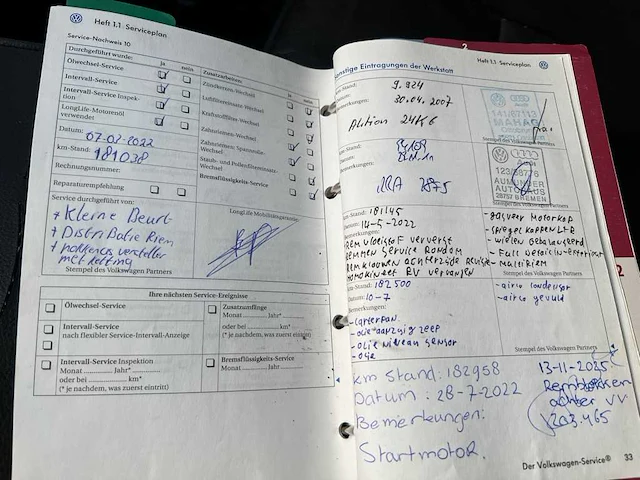 Heft 1.1 Serviceplan
Service-Nachweis 10
Durchgeführt wurde:
ja nein
Ölwechsel-Service
Intervall-Service
Intervall-Service Inspek-
tion
LongLife-Motorenöl
verwendet
Datum: 07-02-2022
km-Stand: 181038
Rechnungsnummer:
Zusatzarbeiten:
ja nein
Zündkerzen-Wechsel
Luftfiltereinsatz-Wechsel
Kraftstofffilter-Wechsel
Zahnriemen-Wechsel
Zahnriemen-Spannrolle-
Wechsel
Staub- und Pollenfiltereinsatz-
Wechsel
Bremsflüssigkeits-Service
Reparaturempfehlung
Service durchgeführt von:
+ Kleine Beurt
+ Distri Butie Riem
met ketting
Stempel des Volkswagen Partners
LongLife Mobilitätsgarantie
Ihre nächsten Service-Ereignisse
Ölwechsel-Service
Intervall-Service
nach flexibler Service-Intervall-Anzeige
Intervall-Service Inspektion
Monat Jahr*
oder bei km*
(* je nachdem, was zuerst eintritt)
Zusatzumfänge
Monat Jahr*
oder bei km*
(* je nachdem, was zuerst eintritt)
Bremsflüssigkeits-Service
Monat Jahr
2
Heft 1.1 Serviceplan
Sonstige Eintragungen der Werkstatt
km-Stand: 9.924
Datum: 30.04.2007
Bemerkungen:
Aktion 24K6
Stempel des Volkswagen Partners
km-Stand:
Datum:
Bemerkungen:
28757 BREMEN
Stempel des Volkswagen Partners
km-Stand: 181145
Datum: 14-5-2022
Bemerkungen:
Remvloeistof ververst
Remmen Service Rondom
Homokineet RV vervangen
- gasveer Motorkap
- spiegelkappen L+R
- wielen Gebalanceerd
Stempel des Volkswagen Partners
km-Stand: 182500
Datum: 10-7
Bemerkungen:
- carterpan
- olie aanzuig zeep
- olie niveau sensor
- olie
- airco condensor
- airco gevuld
Stempel des Volkswagen Partners
km Stand: 182958
Datum: 28-7-2022
Bemerkungen:
Startmotor.
13-11-2025
Remblokken
achter VV
203.465
Der Volkswagen-Service®
33
2